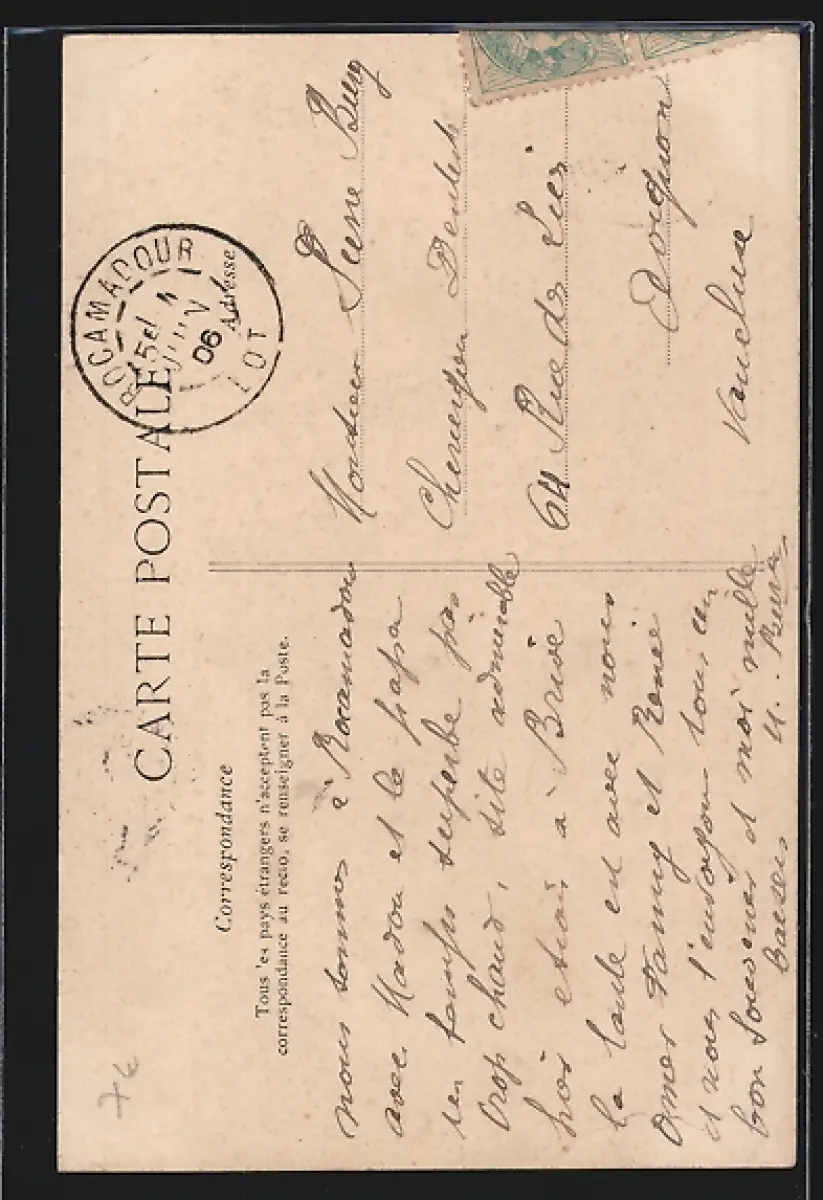 CARTE POSTALE
Correspondance
Tous les pays étrangers n'acceptent pas la
correspondance au recto, se renseigner à la Poste.
Adresse
ROCAMADOUR
4
JUIN
06
LOT
nous sommes à Rocamadour
avec Madou et le papa
un temps superbe pas
trop chaud, site admirable
hier étions à Brive
la tante est avec nous
Fanny et Renée
et nous t'envoyons tous un
bon souvenir et moi mille
baisers
Monsieur
Chirurgien Dentiste
64 Rue des Lices
Avignon
Vaucluse
7€